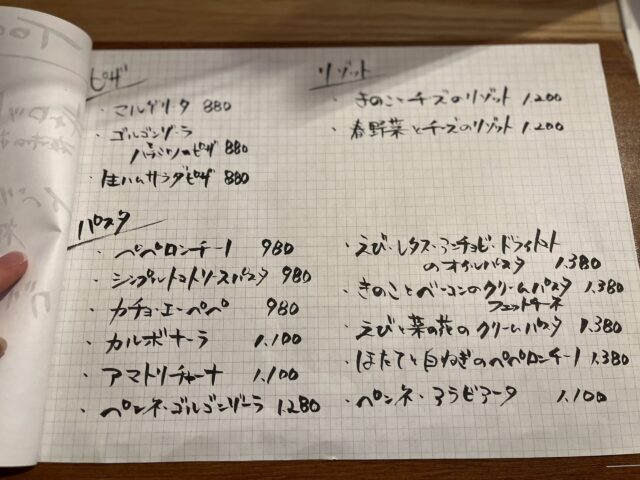 ピザ
・マルゲリータ 880
・ゴルゴンゾーラ
ハチミツのピザ 880
・生ハムサラダピザ 880
リゾット
・きのことチーズのリゾット 1.200
・春野菜とチーズのリゾット 1.200
パスタ
・ペペロンチーノ 980
・シンプルトマトソースパスタ 980
・カチョ・エ・ペペ 980
・カルボナーラ 1.100
・アマトリチャーナ 1.100
・ペンネ・ゴルゴンゾーラ 1.280
・えび・レタス・アンチョビ・ドライトマト
のオイルパスタ 1.380
・きのことベーコンのクリームパスタ 1.380
フェットチーネ
・えびと菜の花のクリームパスタ 1.380
・ほたてと白ねぎのペペロンチーノ 1.380
・ペンネ・アラビアータ 1.100